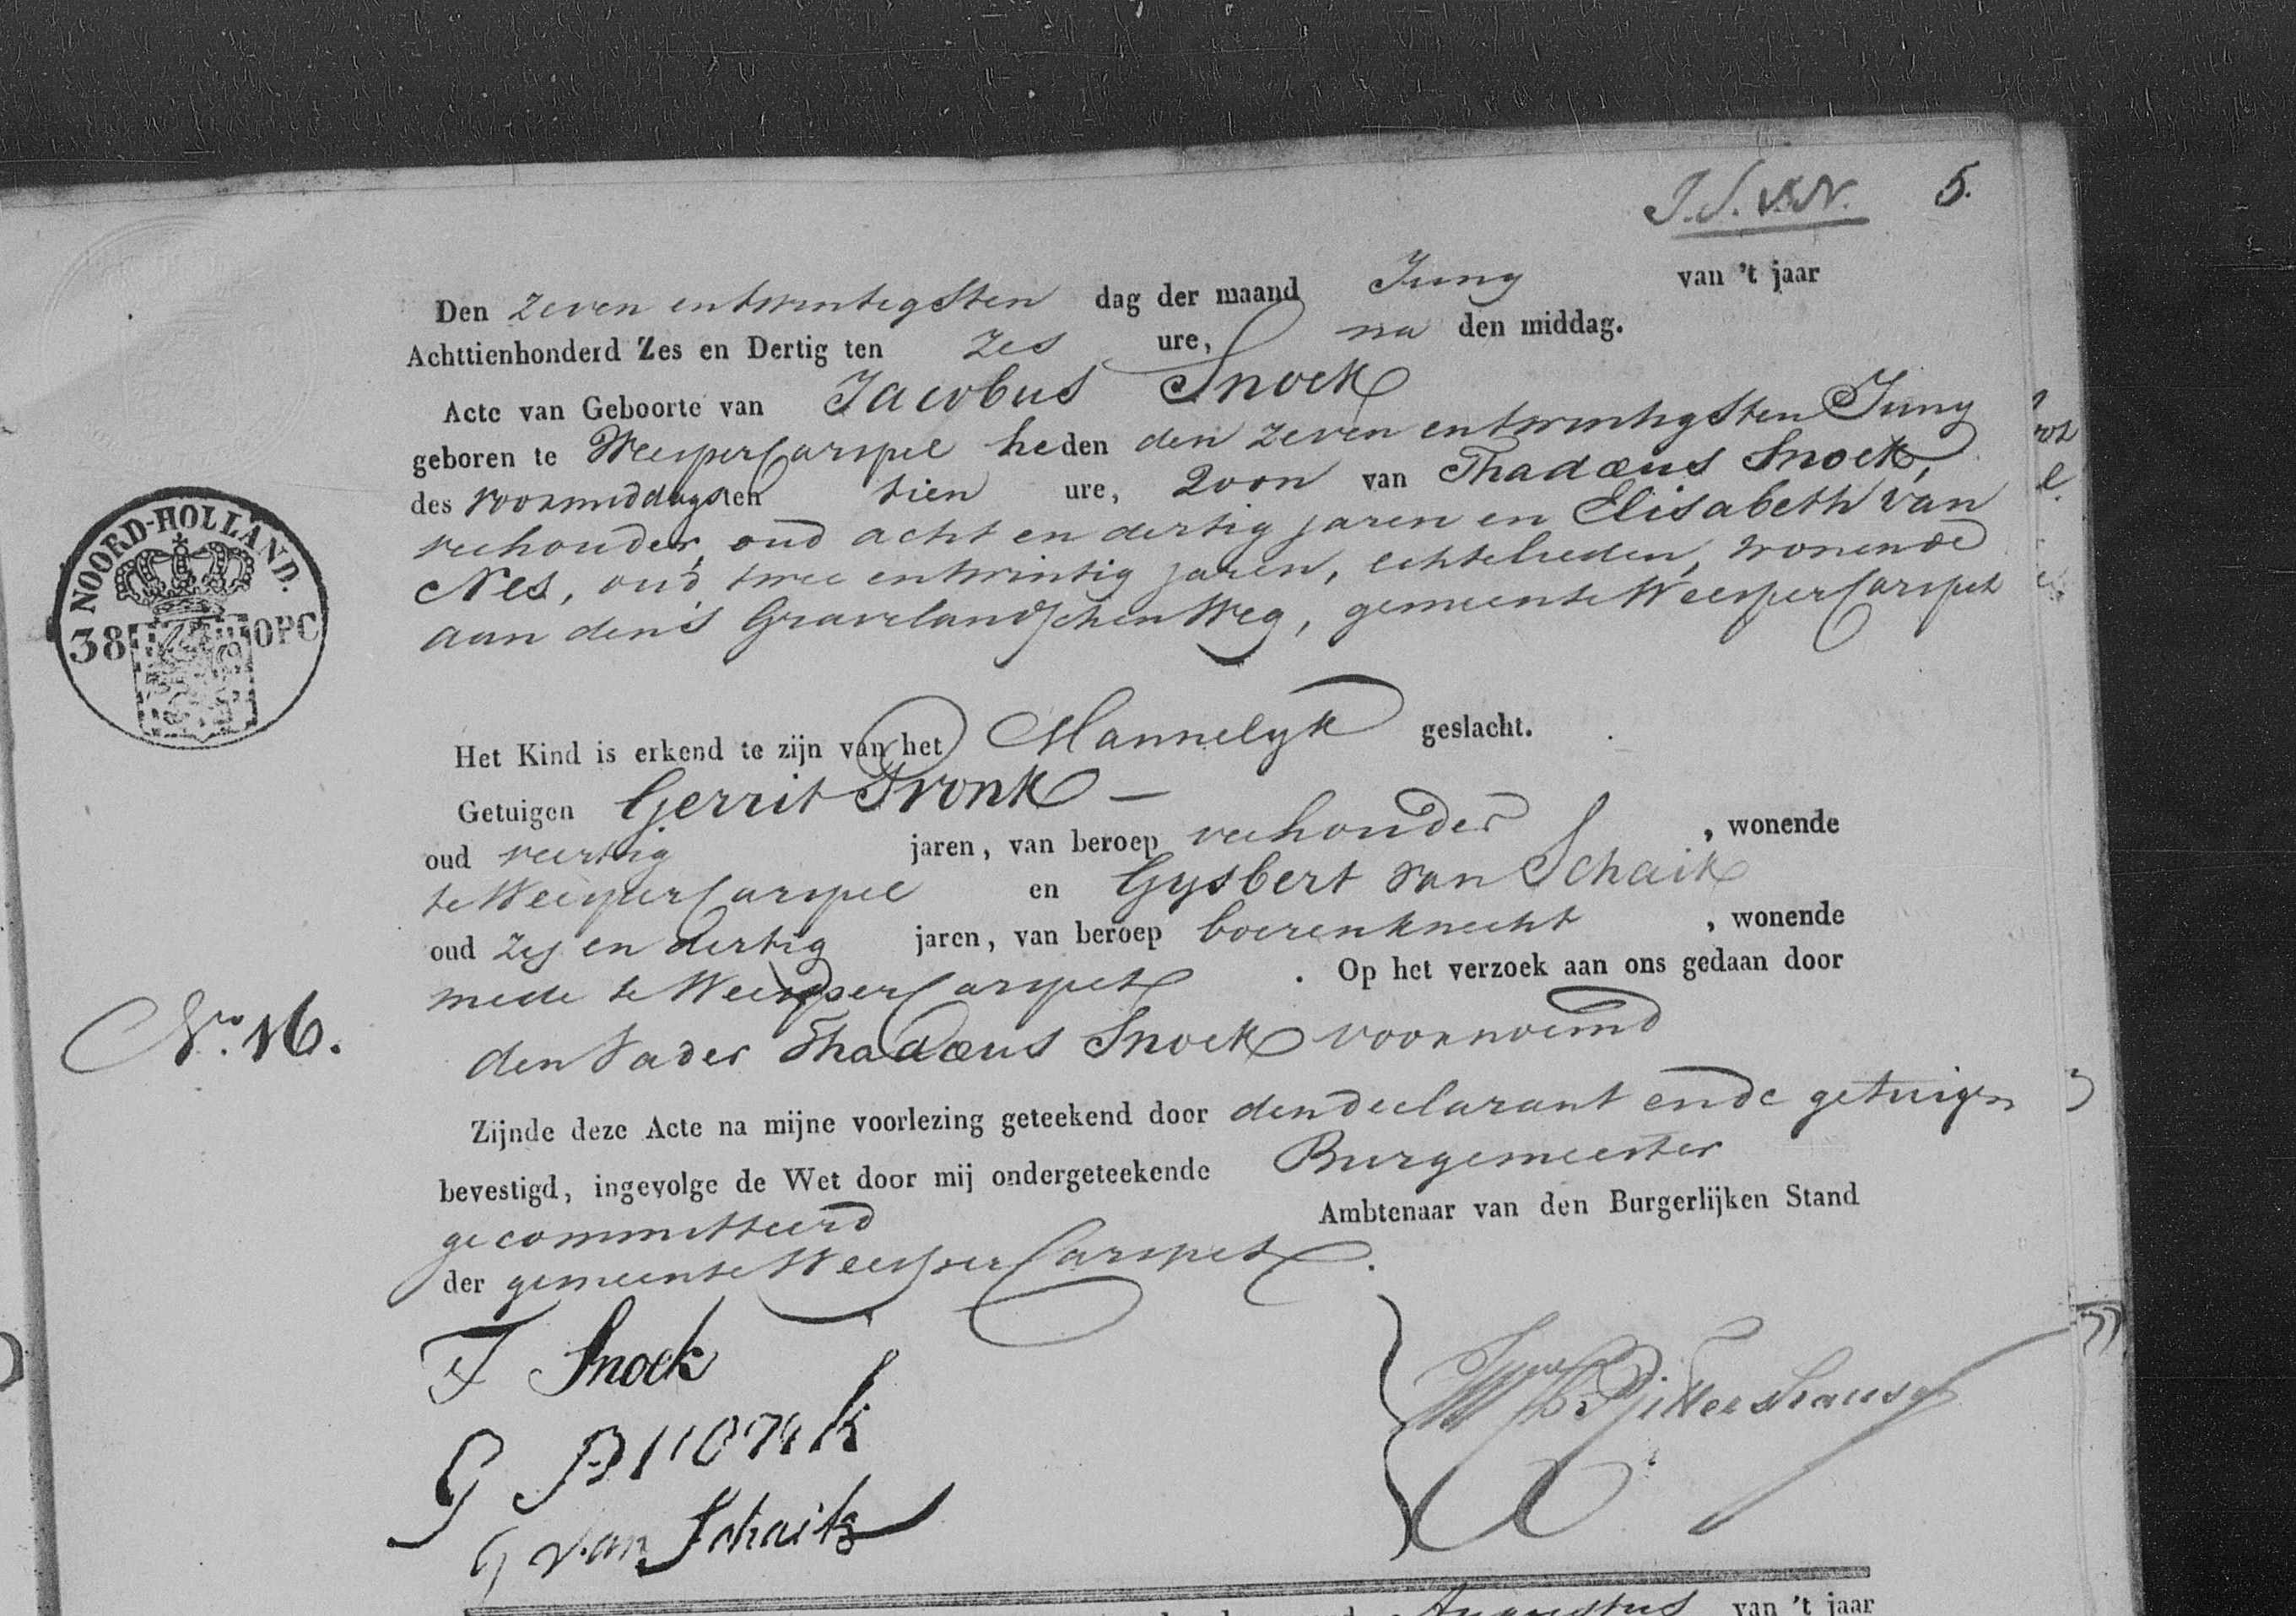 J.S. v.N. 5.
Den zeven entwintigsten dag der maand Juny van 't jaar
Achttienhonderd Zes en Dertig ten zes ure, na den middag.
Acte van Geboorte van Jacobus Snoek
geboren te WeesperCarspel heden den zeven entwintigsten Juny
des voormiddags ten tien ure, Zoon van Thadæus Snoek,
veehouder, oud acht en dertig jaren en Elisabeth van
Nes, oud twee entwintig jaren, echtelieden, wonende
aan den 's Gravelandschen Weg, gemeente WeesperCarspel
NOORD-HOLLAND.
38 OPC
Het Kind is erkend te zijn van het Mannelyk geslacht.
Getuigen Gerrit Pronk —
oud veertig jaren, van beroep veehouder, wonende
te WeesperCarspel en Gysbert van Schaik
oud zes en dertig jaren, van beroep boerenknecht, wonende
mede te WeesperCarspel. Op het verzoek aan ons gedaan door
No. 16.
den Vader Thadæus Snoek voornoemd
Zijnde deze Acte na mijne voorlezing geteekend door den declarant en de getuigen
bevestigd, ingevolge de Wet door mij ondergeteekende Burgemeester
gecommitteerd Ambtenaar van den Burgerlijken Stand
der gemeente WeesperCarspel.
T Snoek
G Pronk
G van Schaik
Augustus van 't jaar